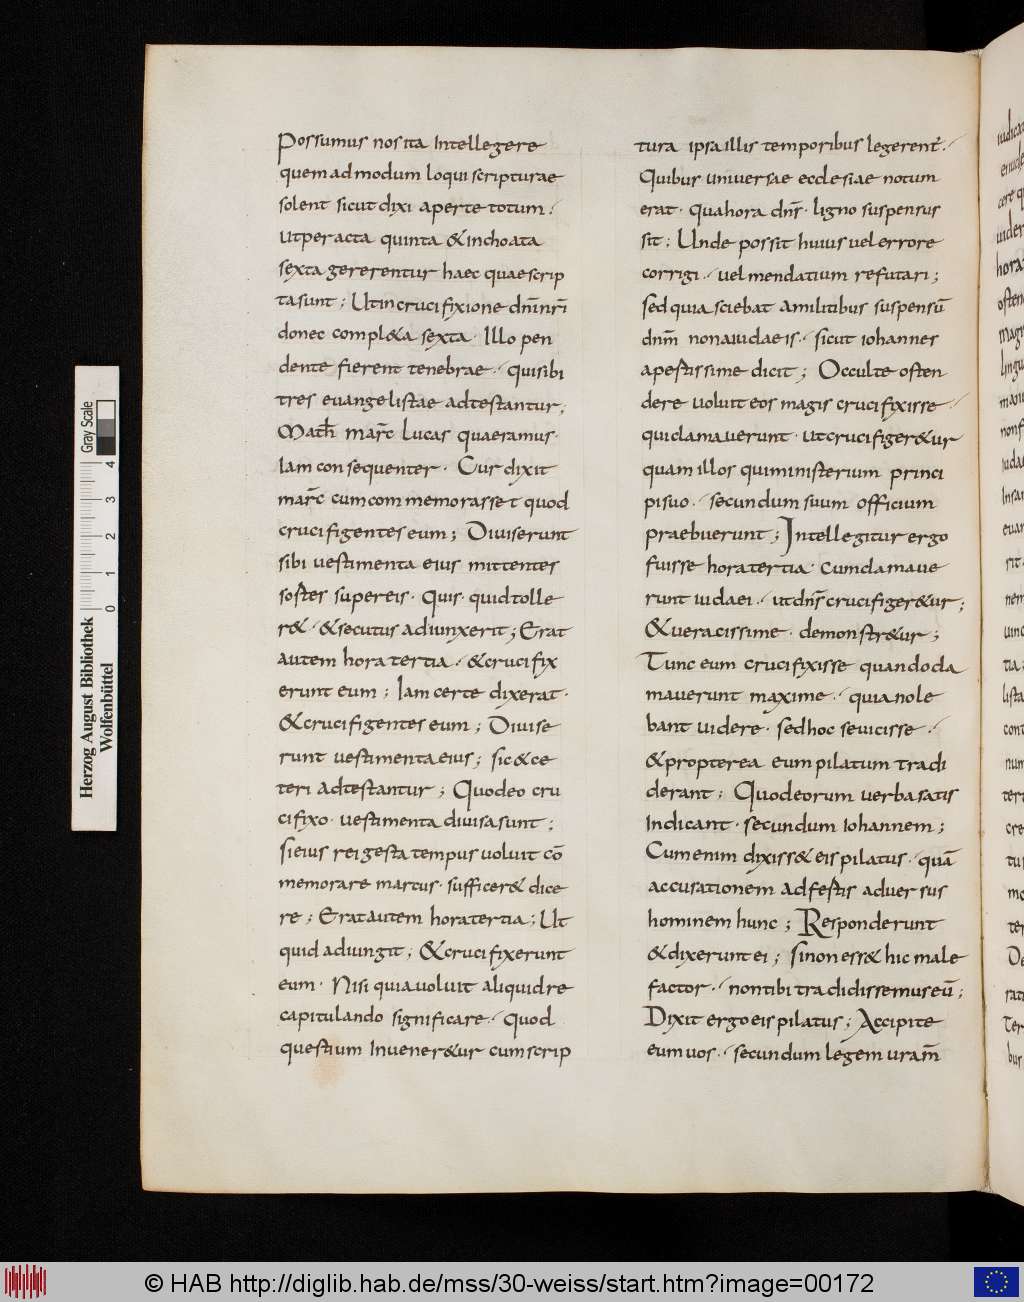 Possumus nos ita Intellegere
quem ad modum loqui scripturae
solent sicut dixi aperte totum;
ut peracta quinta & inchoata
sexta gererentur haec quae scrip
ta sunt; Ut in crucifixione dn̄i nr̄i
donec compl&a sexta · Illo pen
dente fierent tenebrae · qui sibi
tres euangelistae adtestantur;
Math̄ mar̄c Lucas quaeramus·
Iam consequenter · Cur dixit
mar̄c cum commemorasset quod
crucifigentes eum; Diuiserunt
sibi uestimenta eius mittentes
sostes super eis · Quis quid tolle
r& · & secutus adiunxerit; Erat
autem hora tertia · & crucifix
erunt eum; Iam certe dixerat·
& crucifigentes eum; Diuise
runt uestimenta eius; sic & ce
teri adtestantur; Quod eo cru
cifixo · uestimenta diuisa sunt;
Si eius rei gesta tempus uoluit cō
memorare marcus · suffficer& dice
re; Erat autem hora tertia; Ut
quid adiungit; & crucifixerunt
eum · Nisi quia uoluit aliquid re
capitulando significare · Quod
questium Inuener&ur cum scrip
tura ipsa illis temporibus legerent̄·
Quibus uniuersae ecclesiae notum
erat · qua hora dn̄s · ligno suspensus
sit; Unde possit huius uel errore
corrigi · uel mendatium refutari;
sed quia sciebat a militibus suspensū
dnm̄ non a iudaeis · sicut iohannes
apestissime dicit; Occulte osten
dere uoluit eos magis crucifixisse ·
qui clamauerunt · ut crucifiger&ur
quam illos qui ministerium princi
pi suo · secundum suum officium
praebuerunt; Intellegitur ergo
fuisse hora tertia · cum clamaue
runt iudaei · ut dn̄s crucifiger&ur;
& ueracissime · demonstr&ur;
Tunc eum crucifixisse quando cla
mauerunt maxime · quia nole
bant uidere · sed hoc se uicisse ·
& propterea eum pilatum tradi
derant; Quod eorum uerba satis
Indicant · secundum Iohannem;
Cum enim dixiss& eis pilatus · quā
accusationem adfestis aduersus
hominem hunc; Responderunt
& dixerunt ei; Si non ess& hic male
factor · non tibi tradidissemus eū;
Dixit ergo eis pilatus; Accipite
eum uos · secundum legem uram̄
Herzog August Bibliothek
Wolfenbüttel
Gray Scale
0 1 2 3 4
© HAB http://diglib.hab.de/mss/30-weiss/start.htm?image=00172